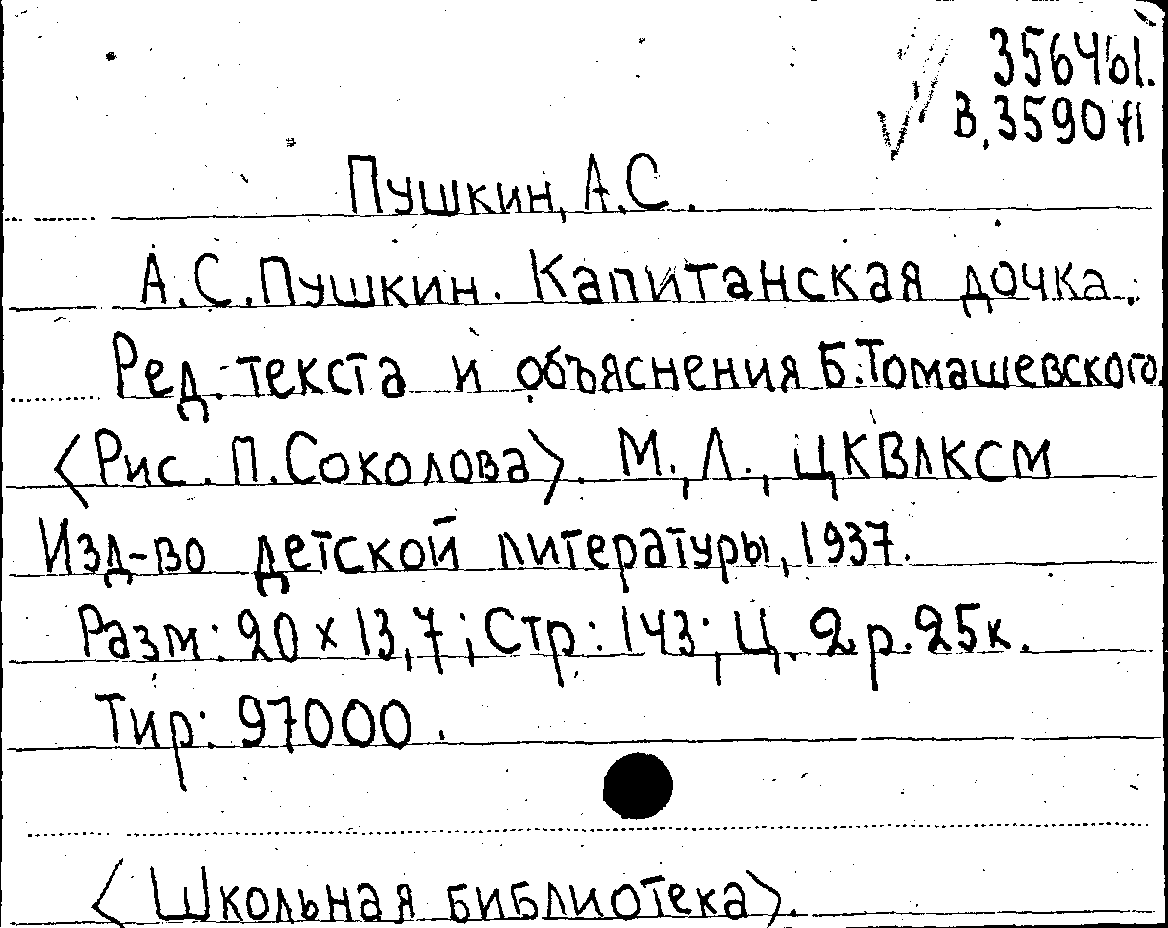 356461.
В.3590 fl
Пушкин, А.С.
А.С.Пушкин. Капитанская дочка.
Ред. текста и объяснения Б.Томашевского,
<Рис. П.Соколова>. М., Л., ЦКВЛКСМ
Изд-во детской литературы, 1937.
Разм: 20 x 13,7; Стр: 143; Ц. 2 р. 25к.
Тир: 97000.
<Школьная библиотека>.